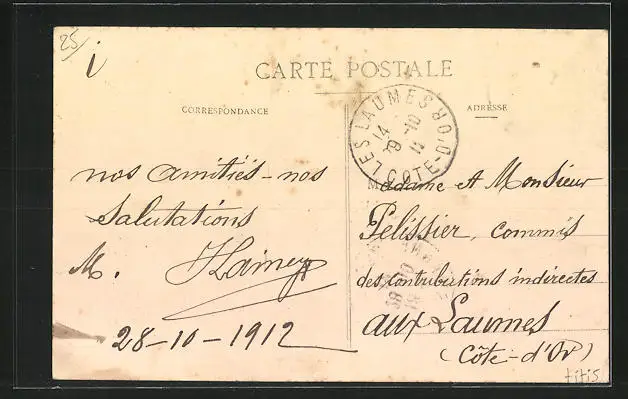 25
i
CARTE POSTALE
CORRESPONDANCE
ADRESSE
LES LAUMES CÔTE-D'OR
nos amitiés - nos
salutations
M.
28-10-1912
Madame et Monsieur
Pelissier, commis
des contributions indirectes
aux Laumes
(Côte-d'Or)
titis